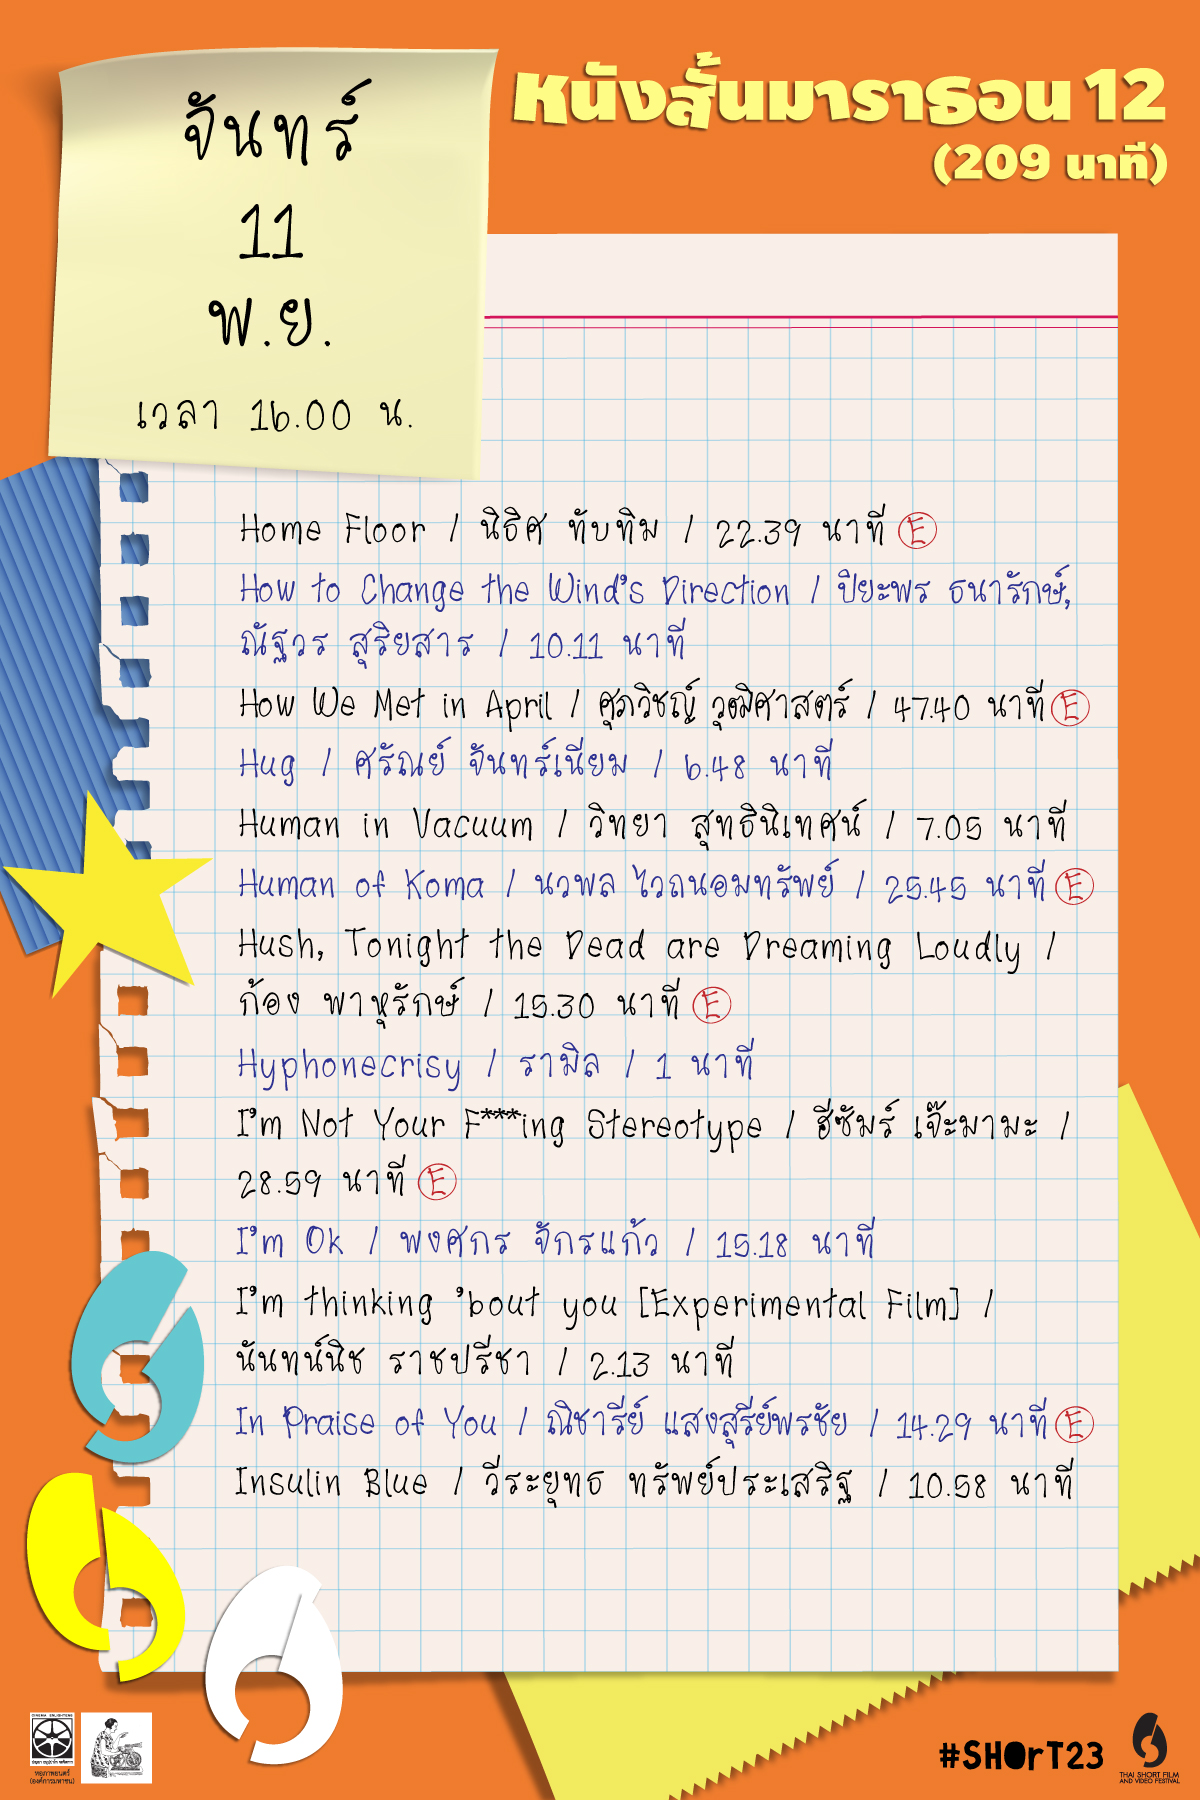 จันทร์
11
พ.ย.
เวลา 16.00 น.
หนังสั้นมาราธอน 12
(209 นาที)
Home Floor / นิธิศ ทับทิม / 22.39 นาที E
How to Change the Wind's Direction / ปิยะพร ธนารักษ์,
ณัฐวร สุริยสาร / 10.11 นาที
How We Met in April / ศุภวิชญ์ วุฒิศาสตร์ / 47.40 นาที E
Hug / ศรัณย์ จันทร์เนียม / 6.48 นาที
Human in Vacuum / วิทยา สุทธินิเทศน์ / 7.05 นาที
Human of Koma / นวพล ไวถนอมทรัพย์ / 25.45 นาที E
Hush, Tonight the Dead are Dreaming Loudly /
ก้อง พาหุรักษ์ / 15.30 นาที E
Hyphonecrisy / รามิล / 1 นาที
I'm Not Your F***ing Stereotype / ฮีซัมร์ เจ๊ะมามะ /
28.59 นาที E
I'm Ok / พงศกร จักรแก้ว / 15.18 นาที
I'm thinking 'bout you [Experimental Film] /
นันทน์นิช ราชปรีชา / 2.13 นาที
In Praise of You / ณิชารีย์ แสงสุรีย์พรชัย / 14.29 นาที E
Insulin Blue / วีระยุทธ ทรัพย์ประเสริฐ / 10.58 นาที
CINEMA ENLIGHTENS
หอภาพยนตร์
(องค์การมหาชน)
#SHOrT23
THAI SHORT FILM
AND VIDEO FESTIVAL